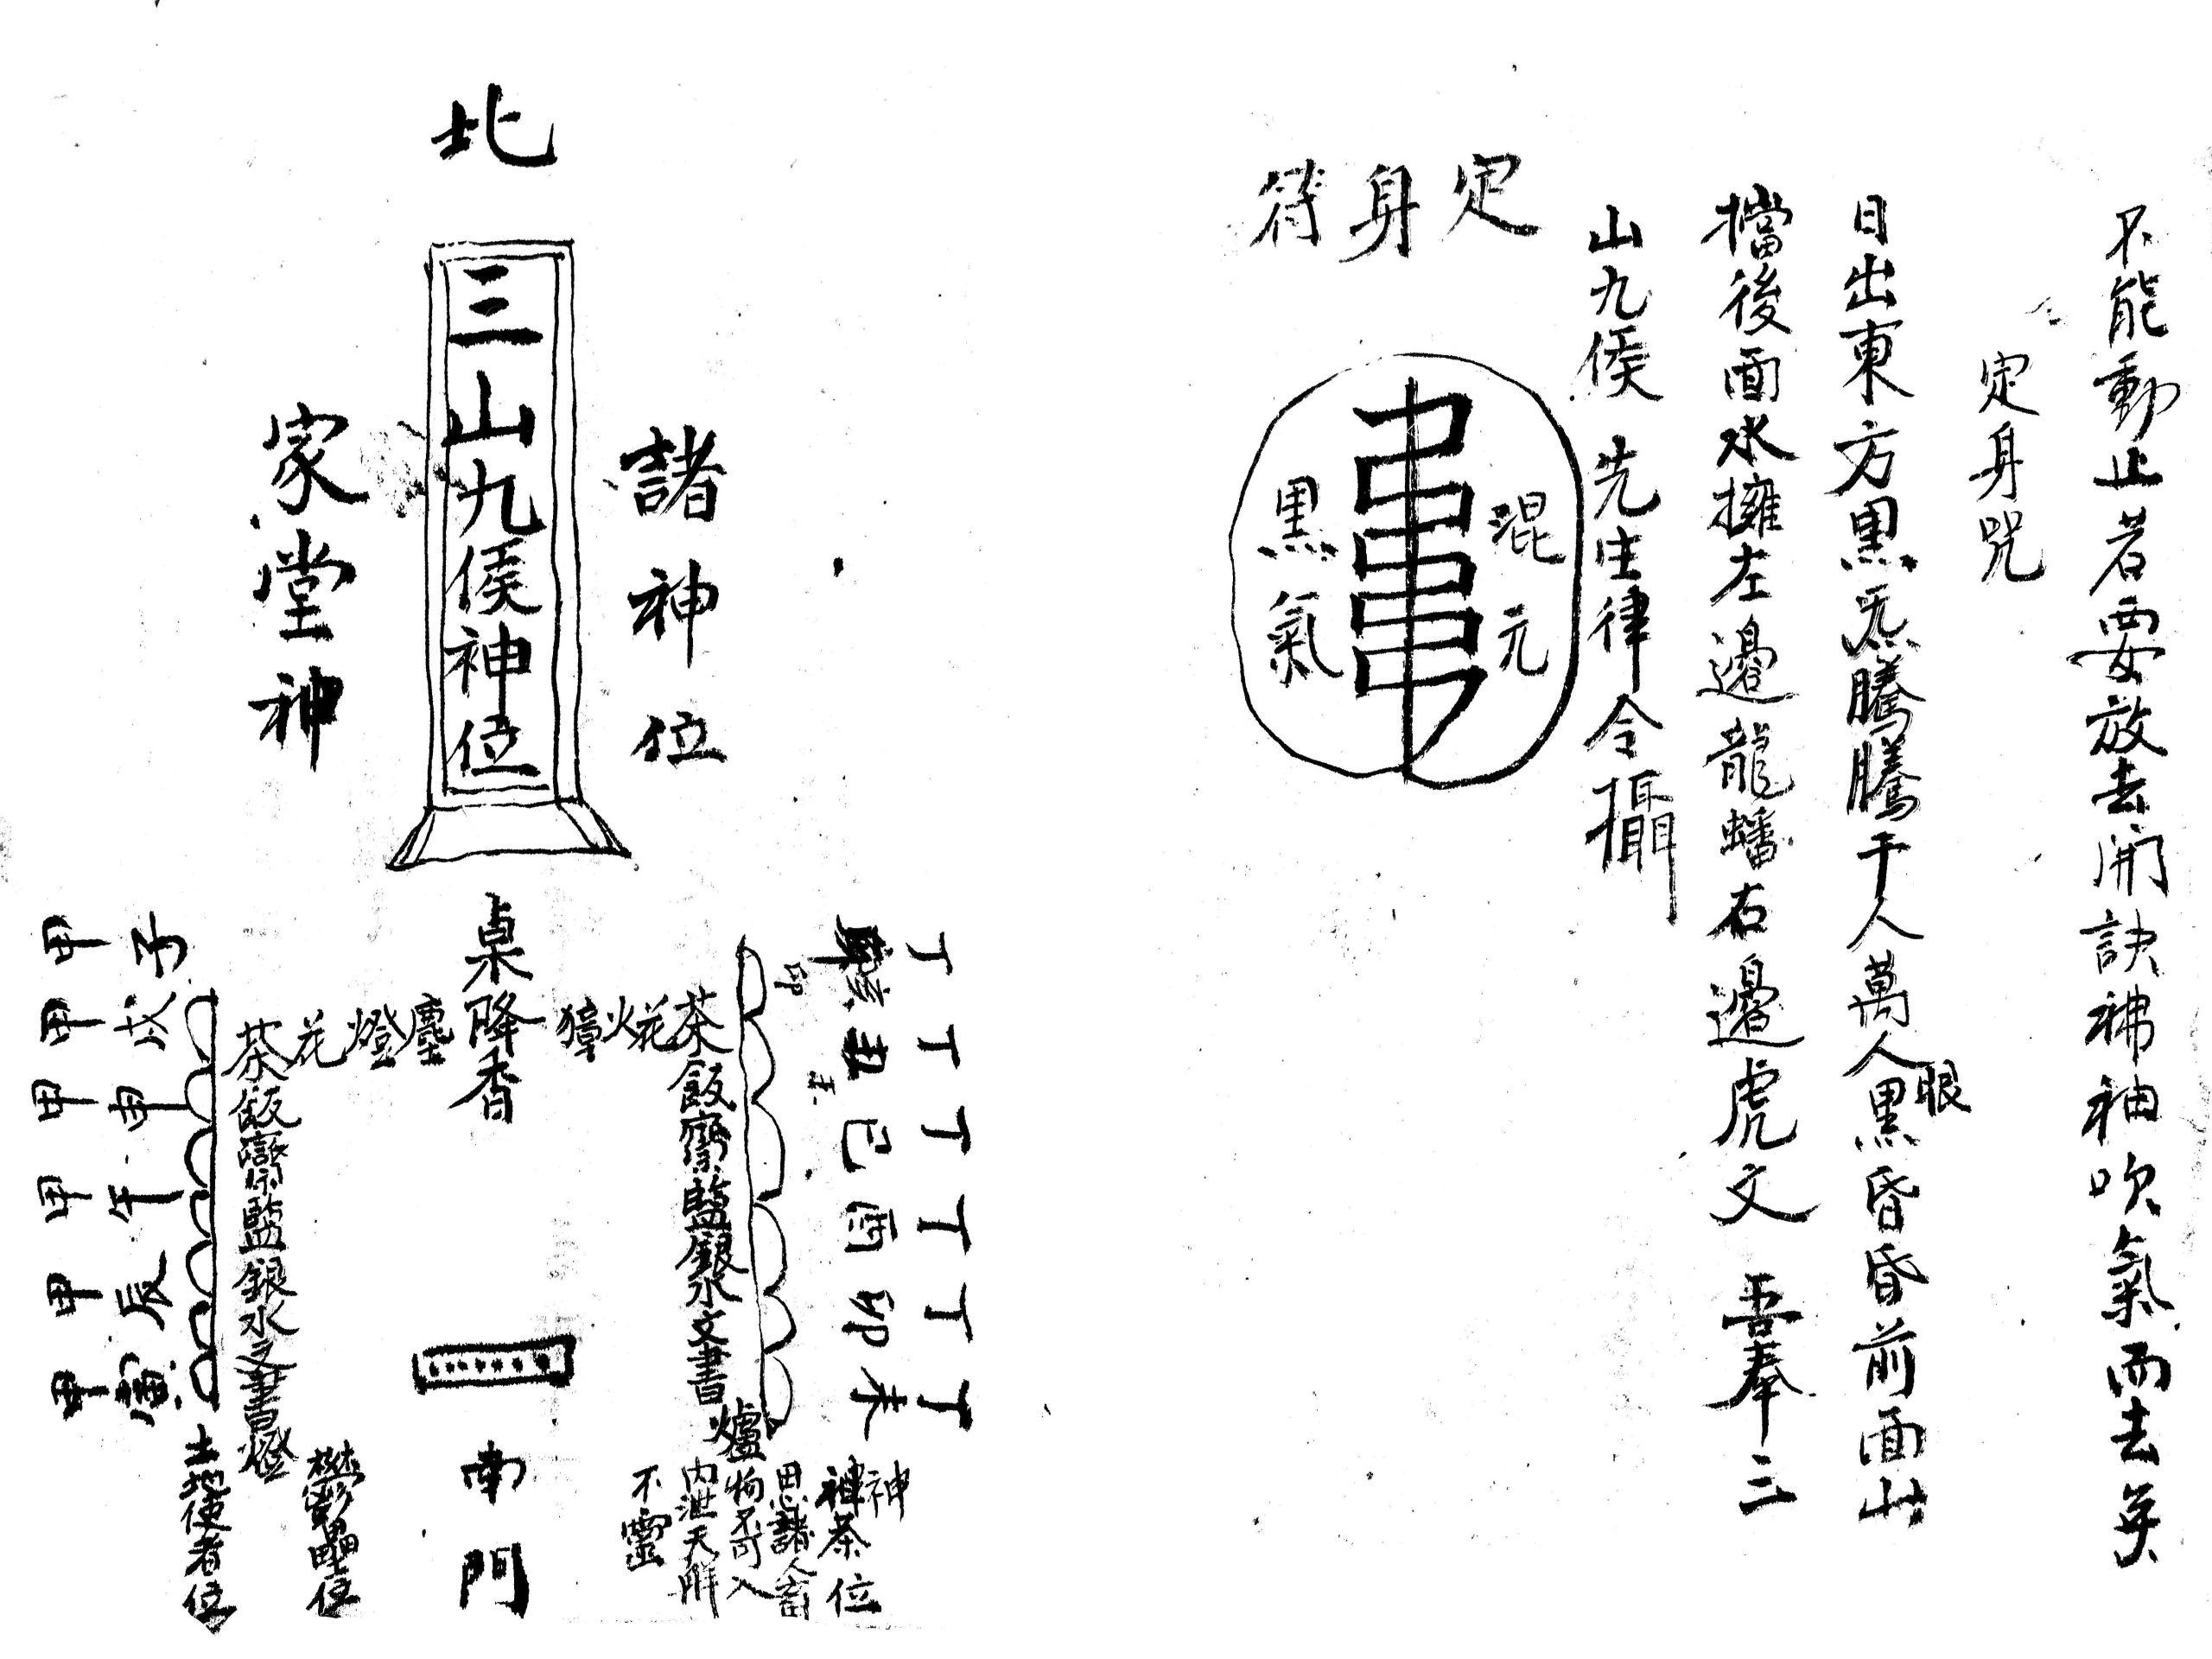 不能動止若要放去開訣袖吹氣而去矣
定身咒
日出東方黑炁騰騰千人萬人眼黑昏昏前面山
擋後面水擁左邊龍蟠右邊虎文 吾奉三
山九侯先生律令攝
定身符
混元
黑氣
北
三山九侯神位
諸神位
家堂神
桌降香
獐 花 茶飯齋監銀水文書爐
塵燈花茶飯齋監銀水文書燈
丁丁丁丁丁丁
丑巳酉卯未
卯
甲甲甲甲甲甲
子戌申午辰寅
南門
神
神荼位
思諸人畜
物不可入
內泄天
不靈
鬱壘位
土地使者位